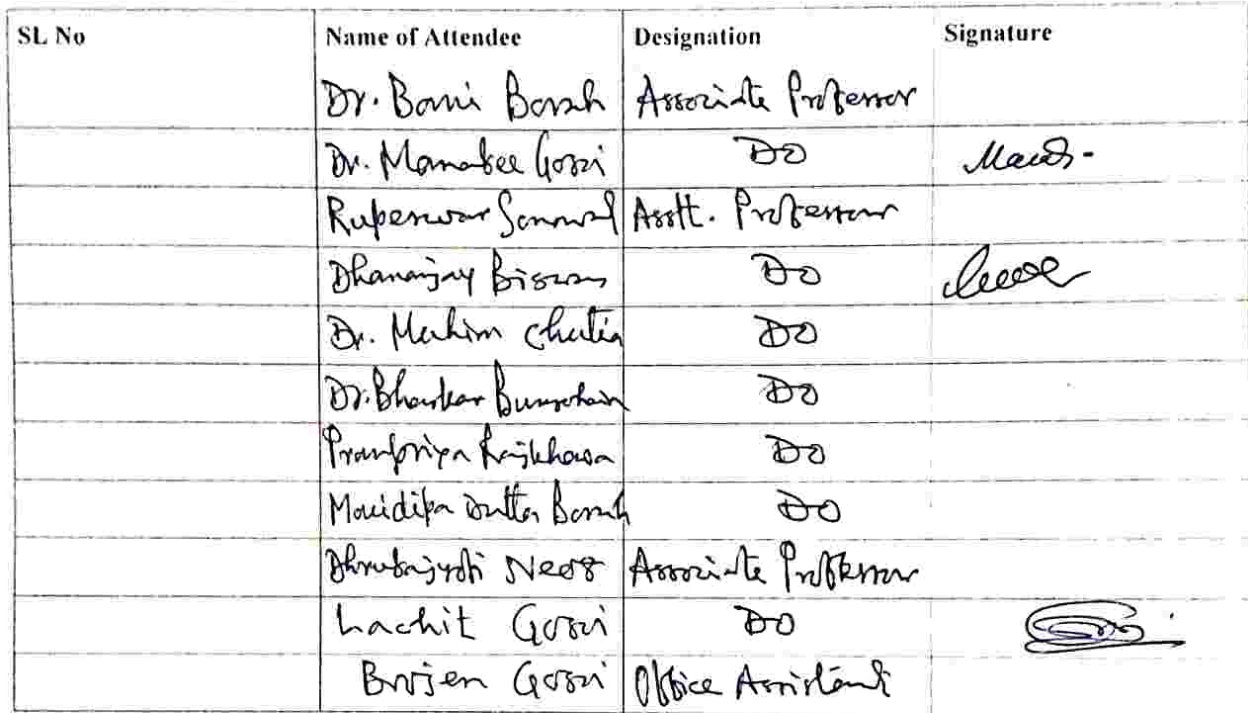 SL No Name of Attendee Designation Signature
Dr. Bani Borah Associate Professor
Dr. Manabee Gogoi DO
Rupeswar Sonowal Asstt. Professor
Dhananjay Biswas DO
Dr. Mahim Chutia DO
Dr. Bhaskar Buragohain DO
Pranpriya Rajkhowa DO
Manidipa Dutta Borah DO
Dhrubajyoti Neog Associate Professor
Lachit Gogoi DO
Brojen Gogoi Office Assistant